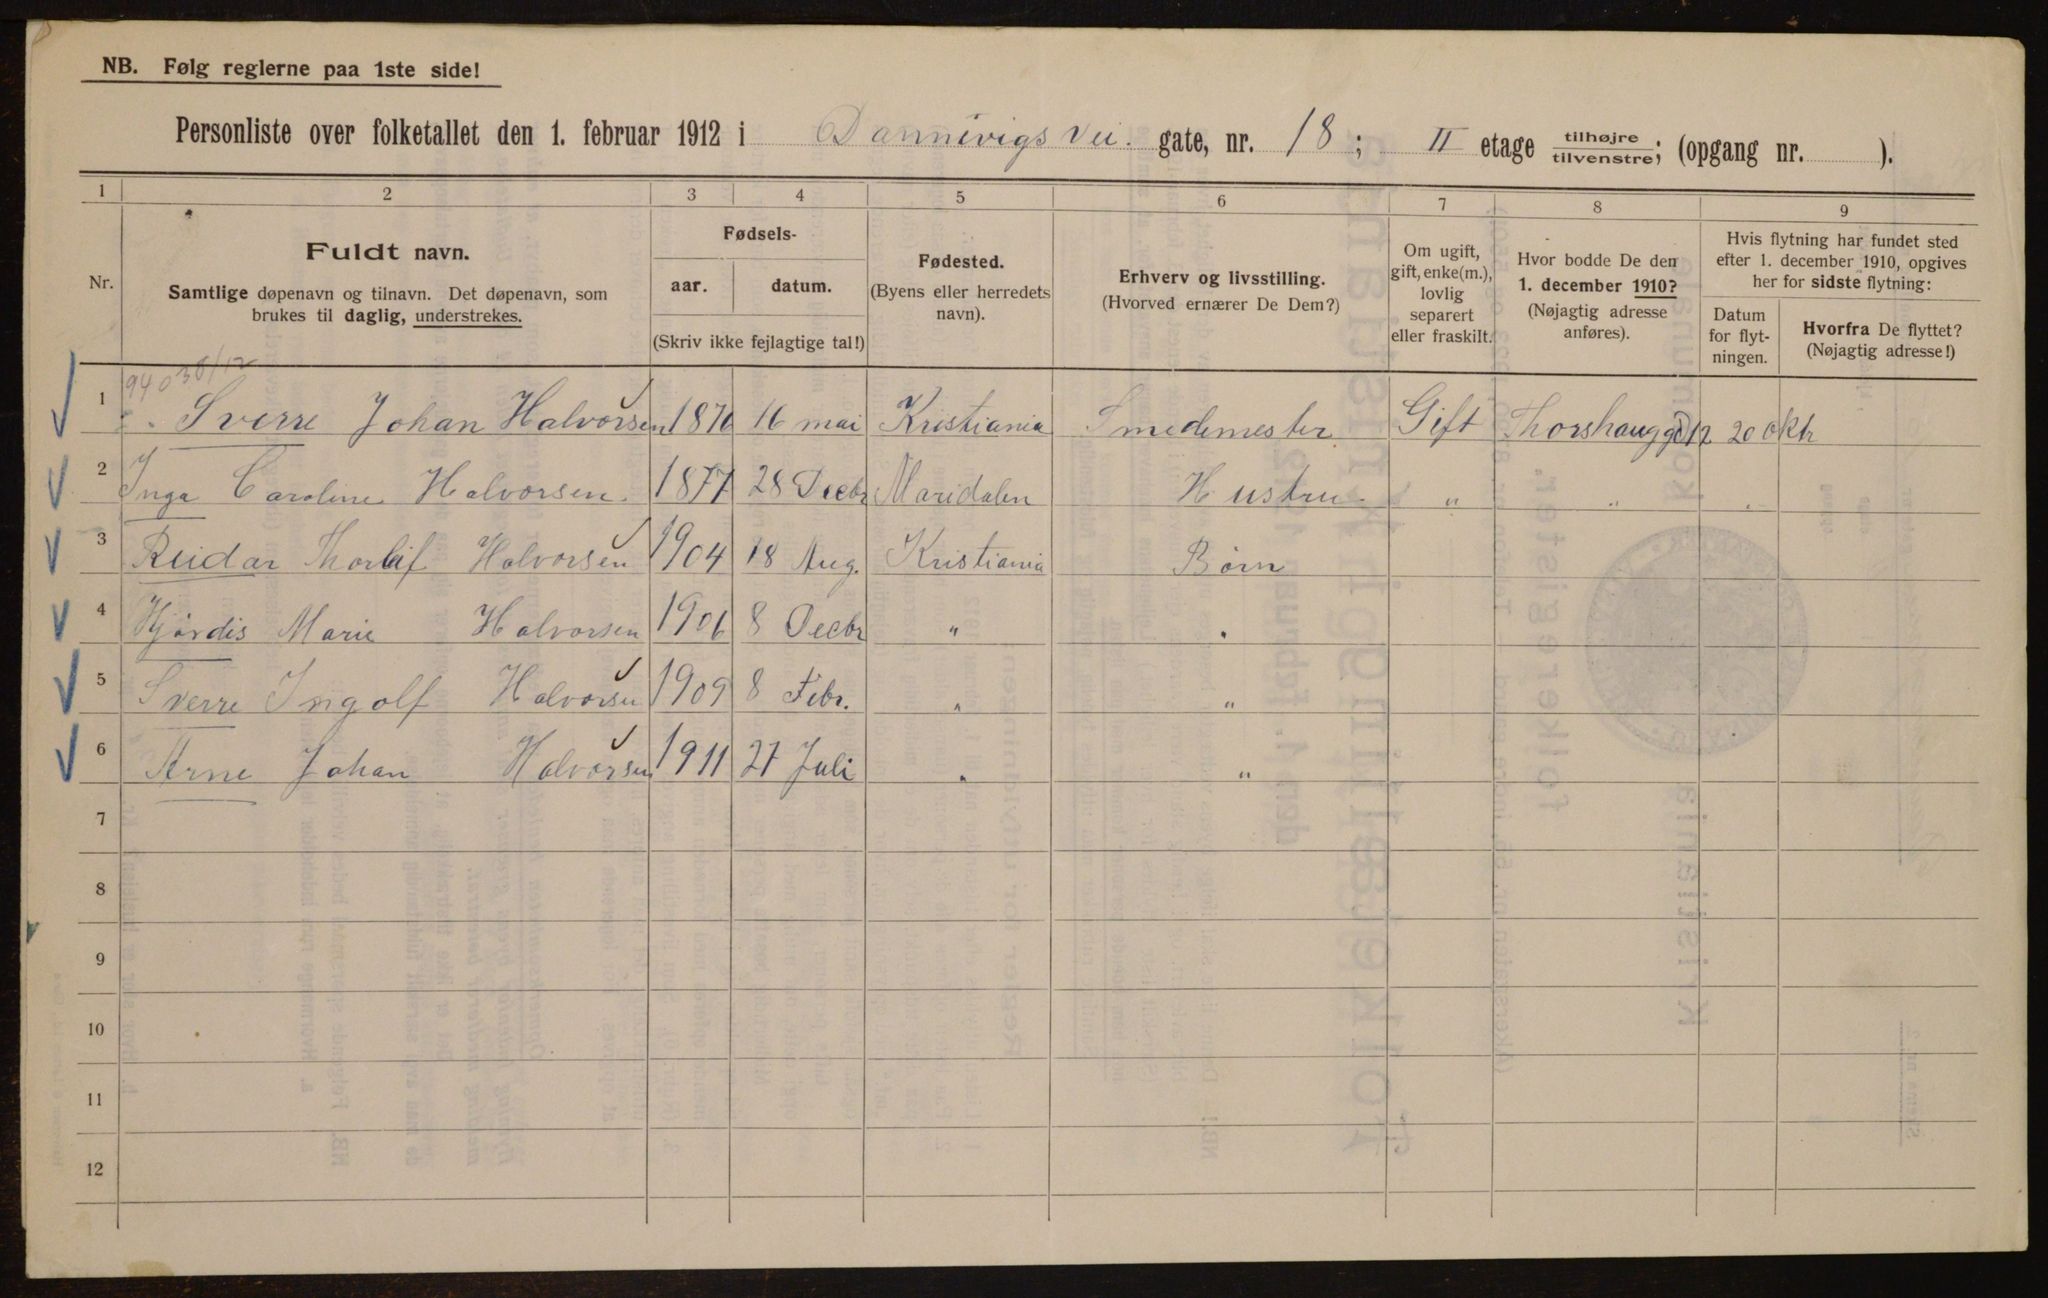 NB. Følg reglerne paa 1ste side!
Personliste over folketallet den 1. februar 1912 i Dannevigs Vei. gate, nr. 18; II etage tilhøjre/tilvenstre; (opgang nr. ).
1 2 3 4 5 6 7 8 9
Nr.
Fuldt navn.
Samtlige døpenavn og tilnavn. Det døpenavn, som
brukes til daglig, understrekes.
Fødsels-
aar. datum.
(Skriv ikke fejlagtige tal!)
Fødested.
(Byens eller herredets
navn).
Erhverv og livsstilling.
(Hvorved ernærer De Dem?)
Om ugift,
gift, enke(m.),
lovlig
separert
eller fraskilt.
Hvor bodde De den
1. december 1910?
(Nøjagtig adresse
anføres).
Hvis flytning har fundet sted
efter 1. december 1910, opgives
her for sidste flytning:
Datum
for flyt-
ningen.
Hvorfra De flyttet?
(Nøjagtig adresse!)
1 Sverre Johan Halvorsen 1876 16 mai Kristiania Smedemester Gift Thorshauggd 12 20 Okt
2 Inga Caroline Halvorsen. 1877 28 Decbr Maridalen Hustru " " "
3 Reidar Thorleif Halvorsen 1904 18 Aug. Kristiania Børn
4 Hjørdis Marie Halvorsen 1906 8 Decbr " "
5 Sverre Ingolf Halvorsen 1909 8 Febr. " "
6 Arne Johan Halvorsen 1911 27 Juli " "
7
8
9
10
11
12